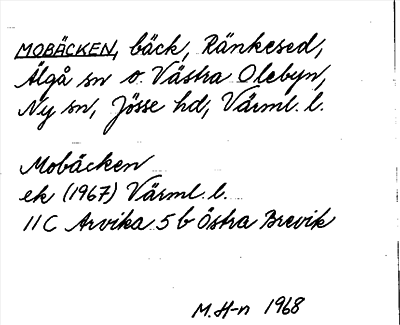 MOBÄCKEN, bäck, Ränkesed,
Älgå sn o. Västra Olebyn,
Ny sn, Jösse hd, Värml. l.
Mobäcken
ek (1967) Värml. l.
11C Arvika 5 b Östra Brevik
M. H-n 1968